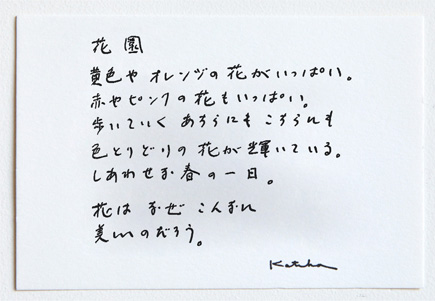 花園
黄色や オレンヅの 花が いっぱい。
赤や ピンクの 花も いっぱい。
歩いていく あちらにも こちらにも
色とりどりの 花が 輝いている。
しあわせな 春の 一日。
花は なぜ こんなに
美しいのだろう。